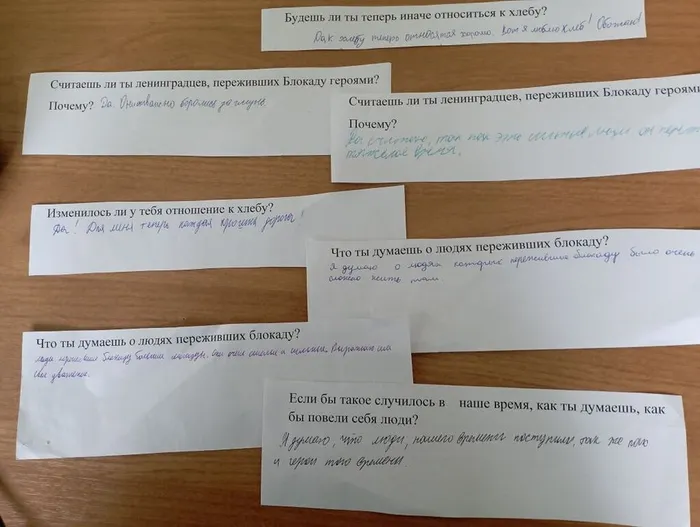 Будешь ли ты теперь иначе относиться к хлебу?
Да, к хлебу теперь хорошо. Вот я люблю хлеб! Обожаю!
Считаешь ли ты ленинградцев, переживших Блокаду героями?
Почему? Да. Они боролись за
Считаешь ли ты ленинградцев, переживших Блокаду героями
Почему?
так как это сильные люди
время.
Изменилось ли у тебя отношение к хлебу?
Да! Для меня теперь каждая крошка дорога!
Что ты думаешь о людях переживших блокаду?
Я думаю о людях которые пережившие блокаду было очень
сложно жить там
Что ты думаешь о людях переживших блокаду?
люди пережившие блокаду большие молодцы. Они очень смелые и сильные. Выражаю им
свое уважение.
Если бы такое случилось в наше время, как ты думаешь, как
бы повели себя люди?
Я думаю, что люди, нашего времени поступили, так же как
и герои того времени